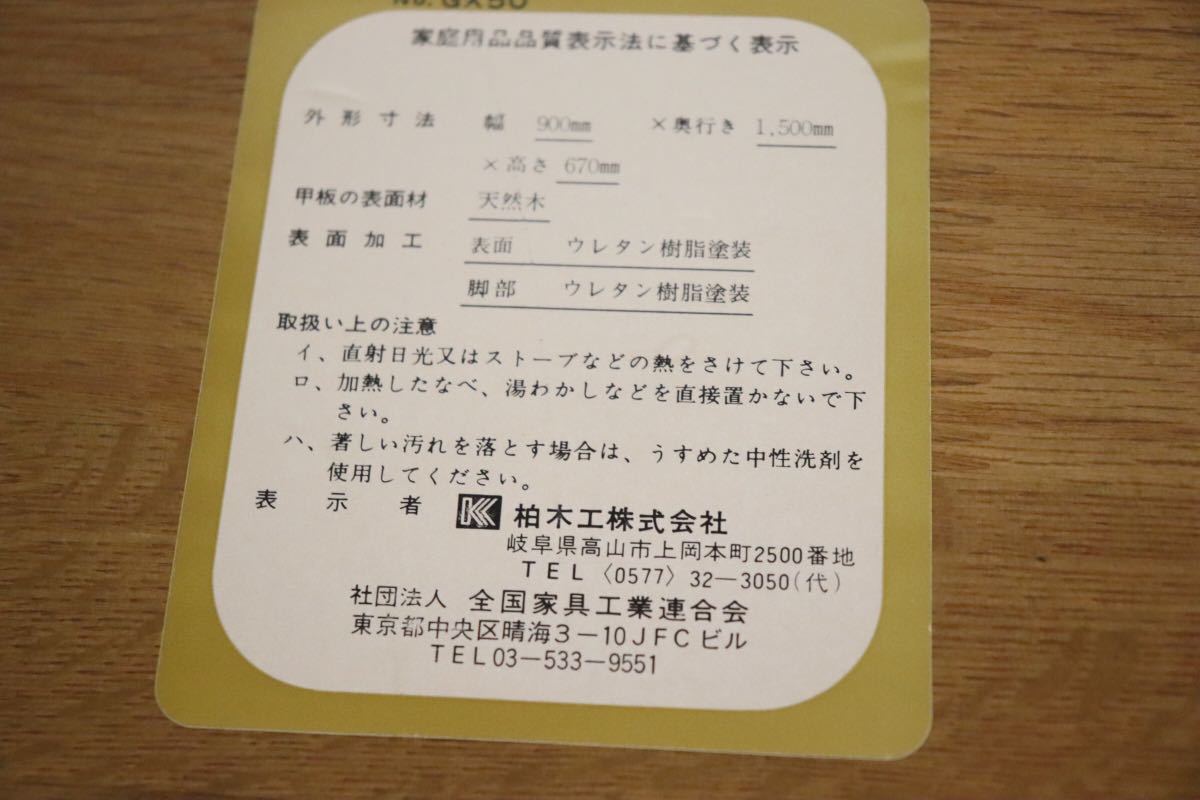 No. GX50
家庭用品品質表示法に基づく表示
外形寸法 幅 900mm ×奥行き 1,500mm
×高さ 670mm
甲板の表面材 天然木
表面加工 表面 ウレタン樹脂塗装
脚部 ウレタン樹脂塗装
取扱い上の注意
イ、直射日光又はストーブなどの熱をさけて下さい。
ロ、加熱したなべ、湯わかしなどを直接置かないで下
さい。
ハ、著しい汚れを落とす場合は、うすめた中性洗剤を
使用してください。
表示者 柏木工株式会社
岐阜県高山市上岡本町2500番地
TEL〈0577〉32—3050(代)
社団法人 全国家具工業連合会
東京都中央区晴海3—10JFCビル
TEL03—533—9551